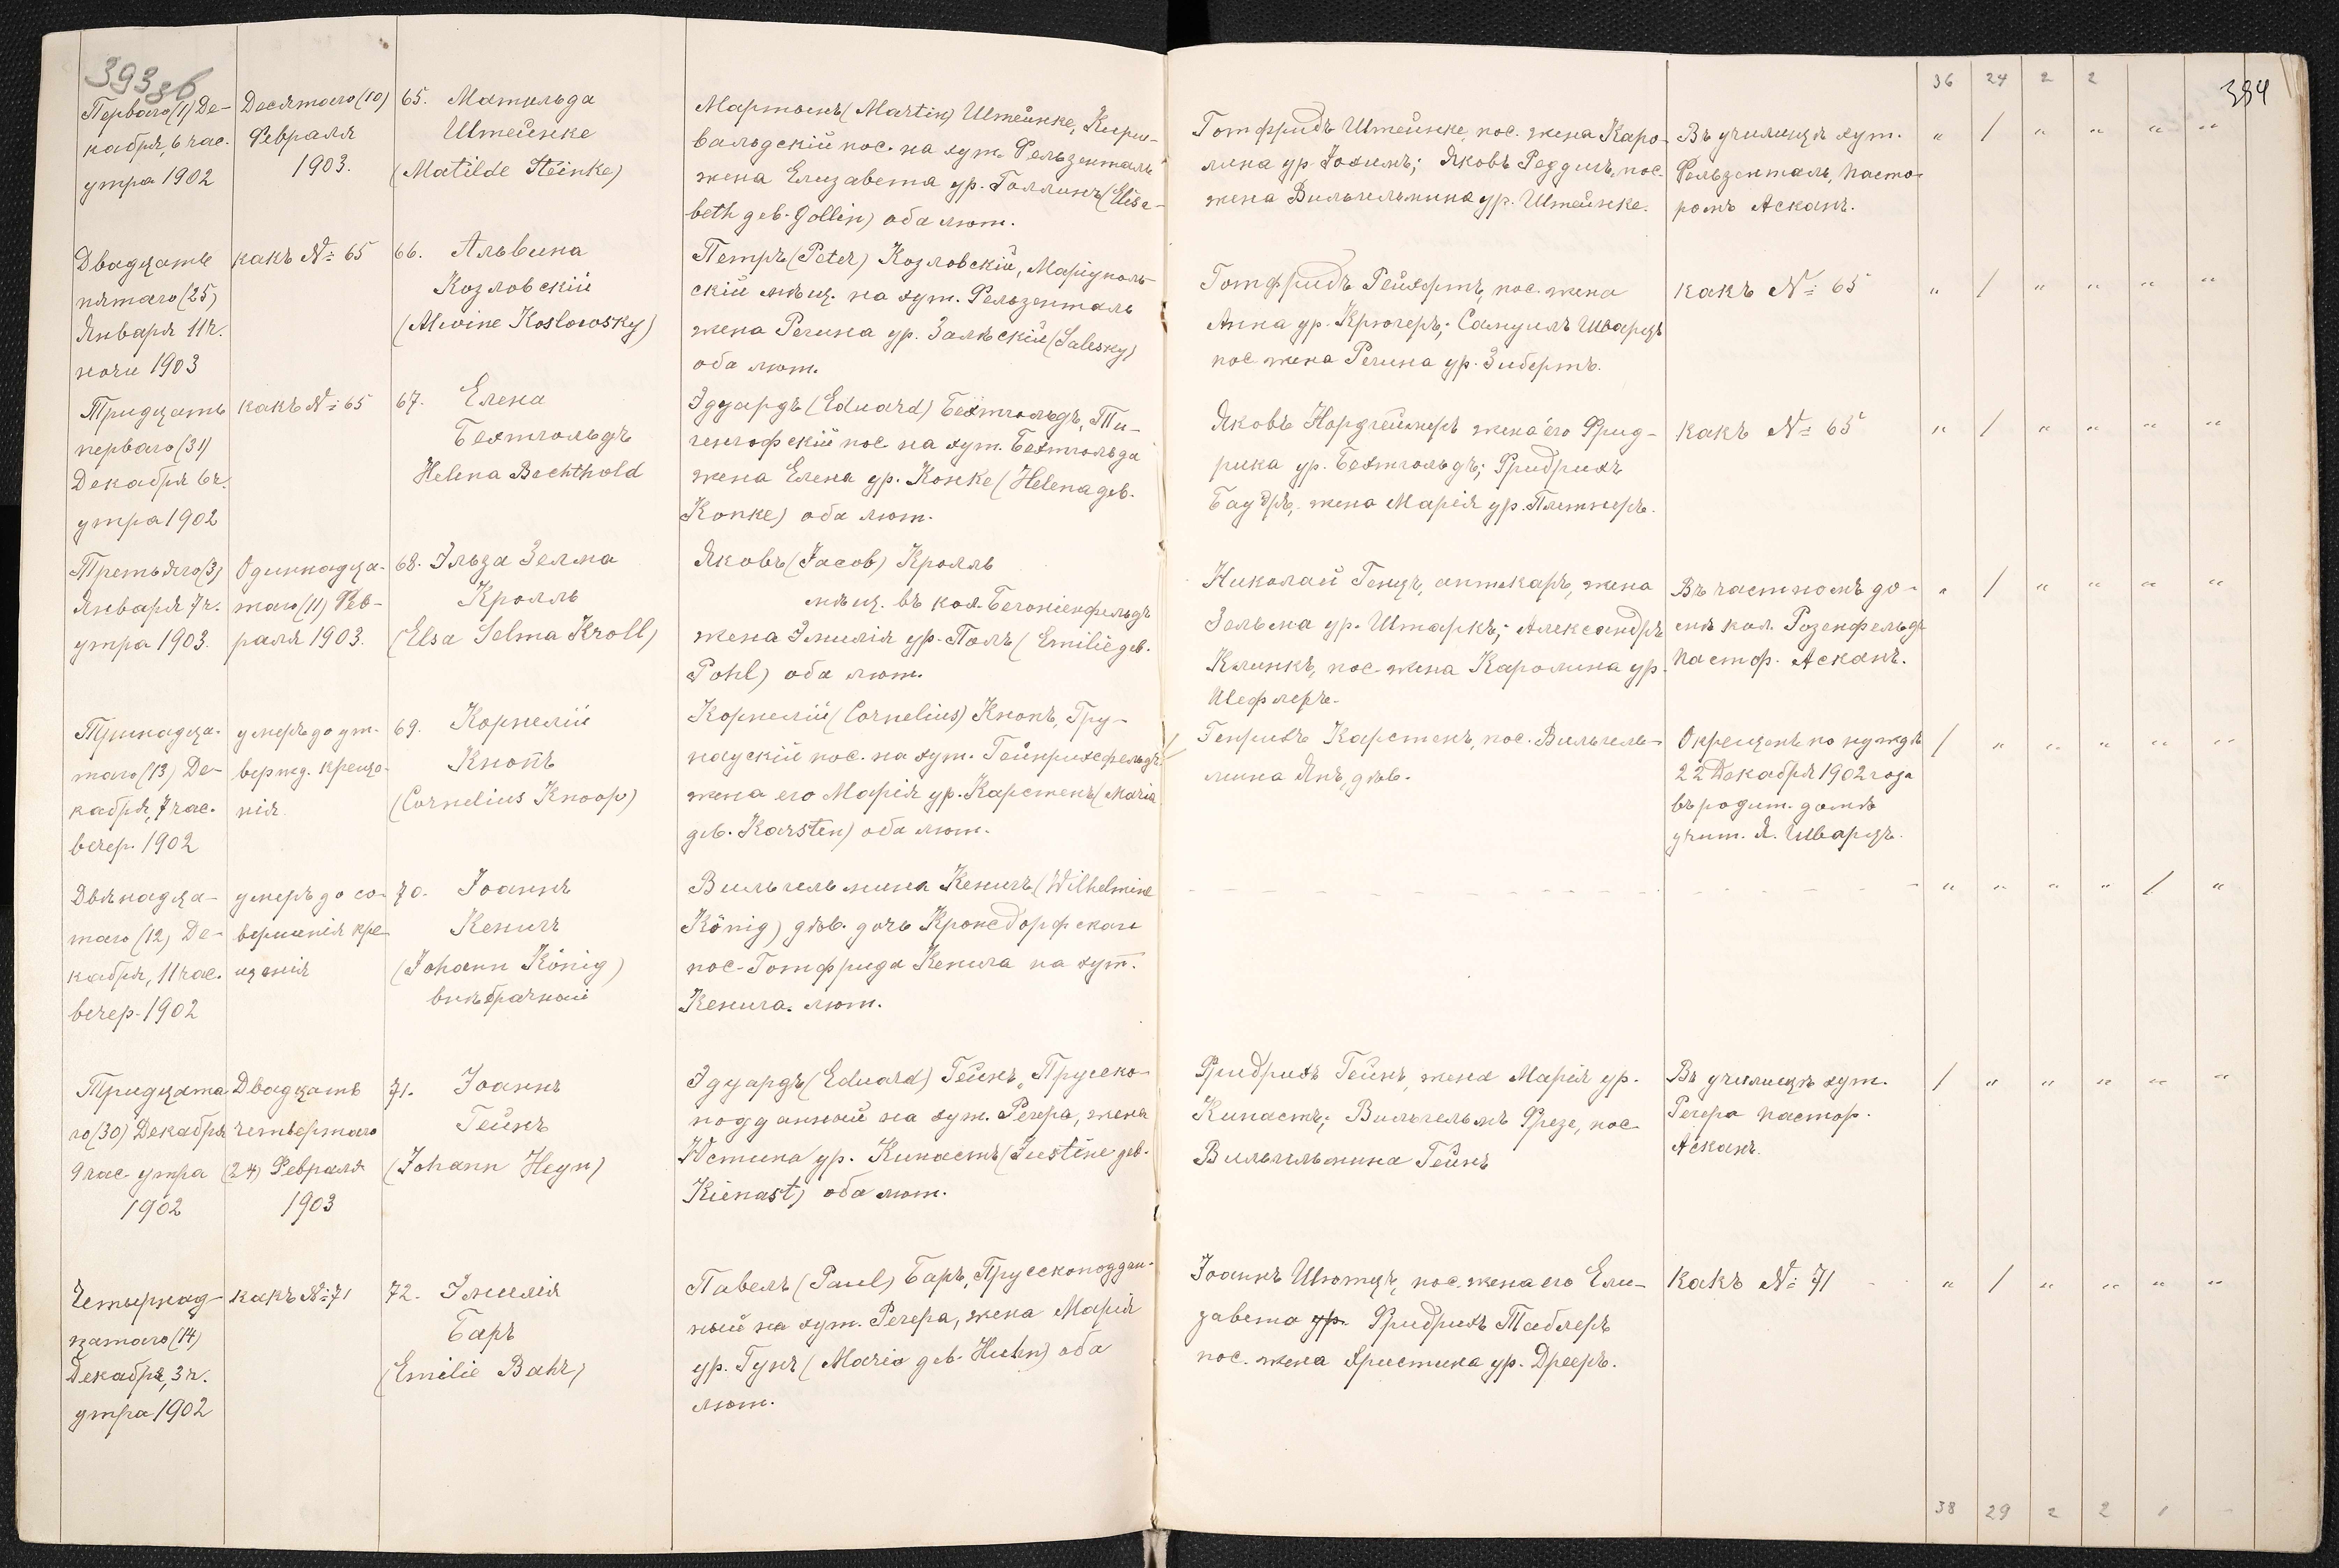 393 зв
36 24 2 2
394
Перваго (1) Де-
кабря, 6 час.
утра 1902
Десятаго (10)
Февраля
1903.
65. Матильда
Штейнке
(Matilde Steinke)
Мартынъ (Martin) Штейнке, Кирш-
вальдскій пос. на хут. Фельзенталь
жена Елизавета ур. Голлинъ (Elisa-
beth geb. Gollin) оба лют.
Готфридъ Штейнке, пос. жена Каро-
лина ур. Іохимъ; Яковъ Реддигъ, пос.
жена Вильгельмина ур. Штейнке.
Въ училищѣ хут.
Фельзенталь, Пасто-
ромъ Асканъ.
" / " " " "
Двадцать
пятаго (25)
Января 11 ч.
ночи 1903
какъ № 65
66. Альвина
Козловскій
(Alwine Koslowsky)
Петръ (Peter) Козловскій, Маріуполь-
скій мѣщ. на хут. Фельзенталь
жена Регина ур. Залѣскій (Salesky)
оба лют.
Готфридъ Рейхертъ, пос. жена
Анна ур. Крюгеръ; Самуилъ Шварцъ
пос. жена Регина ур. Зибертъ.
какъ № 65
" / " " " "
Тридцать
перваго (31)
Декабря 6 ч.
утра 1902
какъ № 65
67. Елена
Бехтгольдъ
Helena Bechthold
Эдуардъ (Eduard) Бехтгольдъ, Ти-
генгофскій пос. на хут. Бехтгольда
жена Елена ур. Конке (Helena geb.
Konke) оба лют.
Яковъ Нордгеймеръ жена его Фрид-
рика ур. Бехтгольдъ; Фридрихъ
Бауэръ, жена Марія ур. Плетнеръ.
какъ № 65
" / " " " "
Третьяго (3)
Января 7 ч.
утра 1903.
Одиннадца-
таго (11) Фев-
раля 1903.
68. Эльза Зелма
Кролль
(Elsa Selma Kroll)
Яковъ (Jacob) Кролль
мѣщ. въ кол. Бегоніенфельдъ
жена Эмилія ур. Поль (Emilie geb.
Pohl) оба лют.
Николай Генцъ, аптекарь, жена
Зельма ур. Штаркъ; Александръ
Клинкъ, пос. жена Каролина ур.
Шефлеръ.
Въ частномъ до-
мѣ кол. Розенфельдъ
Пастор. Асканъ.
" / " " " "
Тринадца-
таго (13) Де-
кабря, 7 час.
вечер. 1902
умеръ до ут-
вержд. креще-
нія
69. Корнелій
Кнопъ
(Cornelius Knoop)
Корнелій (Cornelius) Кнопъ, Гру-
наускій пос. на хут. Гейнрихсфельдъ
жена его Марія ур. Карстенъ (Maria
geb. Karsten) оба лют.
Генрихъ Карстенъ, пос. Вильгель-
мина Янъ, дѣв.
Окрещенъ по нуждѣ
22 Декабря 1902 года
въ родит. домѣ
учит. Я. Шварцъ.
/ " " " " "
Двѣнадца-
таго (12) Де-
кабря, 11 час.
вечер. 1902
умеръ до со-
вершенія кре-
щенія
70. Іоаннъ
Кенигъ
(Johann König)
внѣбрачный
Вильгельмина Кенигъ (Wilhelmine
König) дѣв. дочь Кронсдорфскаго
пос. Готфрида Кенига на хут.
Кенига. лют.
" " " " / "
Тридцата-
го (30) Декабря
9 час. утра
1902
Двадцать
четвертаго
(24) Февраля
1903
71. Іоаннъ
Гейнъ
(Johann Heyn)
Эдуардъ (Eduard) Гейнъ, Прусско-
подданный на хут. Регера, жена
Юстина ур. Кинастъ (Justine geb.
Kienast) оба лют.
Фридрихъ Гейнъ, жена Марія ур.
Кинастъ; Вильгельмъ Фрезе, пос.
Вильгельмина Гейнъ
Въ училищѣ хут.
Регера пастор.
Асканъ.
/ " " " " "
Четырнад-
цатаго (14)
Декабря, 3 ч.
утра 1902
какъ № 71
72. Эмилія
Баръ
(Emilie Bahr)
Павелъ (Paul) Баръ, Прусскоподдан-
ный на хут. Регера, жена Марія
ур. Гунъ (Maria geb. Huhn) оба
лют.
Іоаннъ Шютцъ, пос. жена его Ели-
завета ур. Фридрихъ Таблеръ
пос. жена Христина ур. Дрееръ.
какъ № 71
" / " " " "
38 29 2 2 1